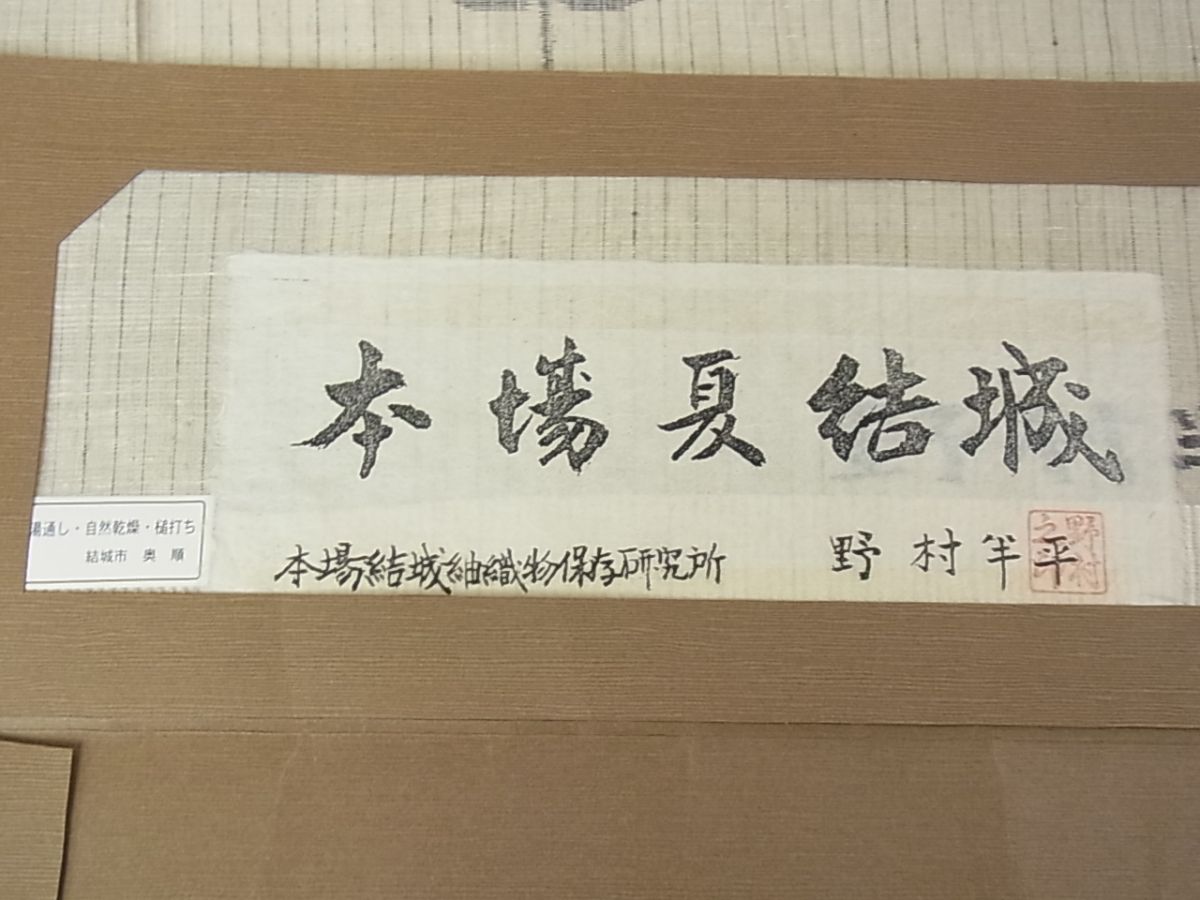 本場夏結城
湯通し・自然乾燥・槌打ち
結城市 奥 順
本場結城紬織物保存研究所
野村半平